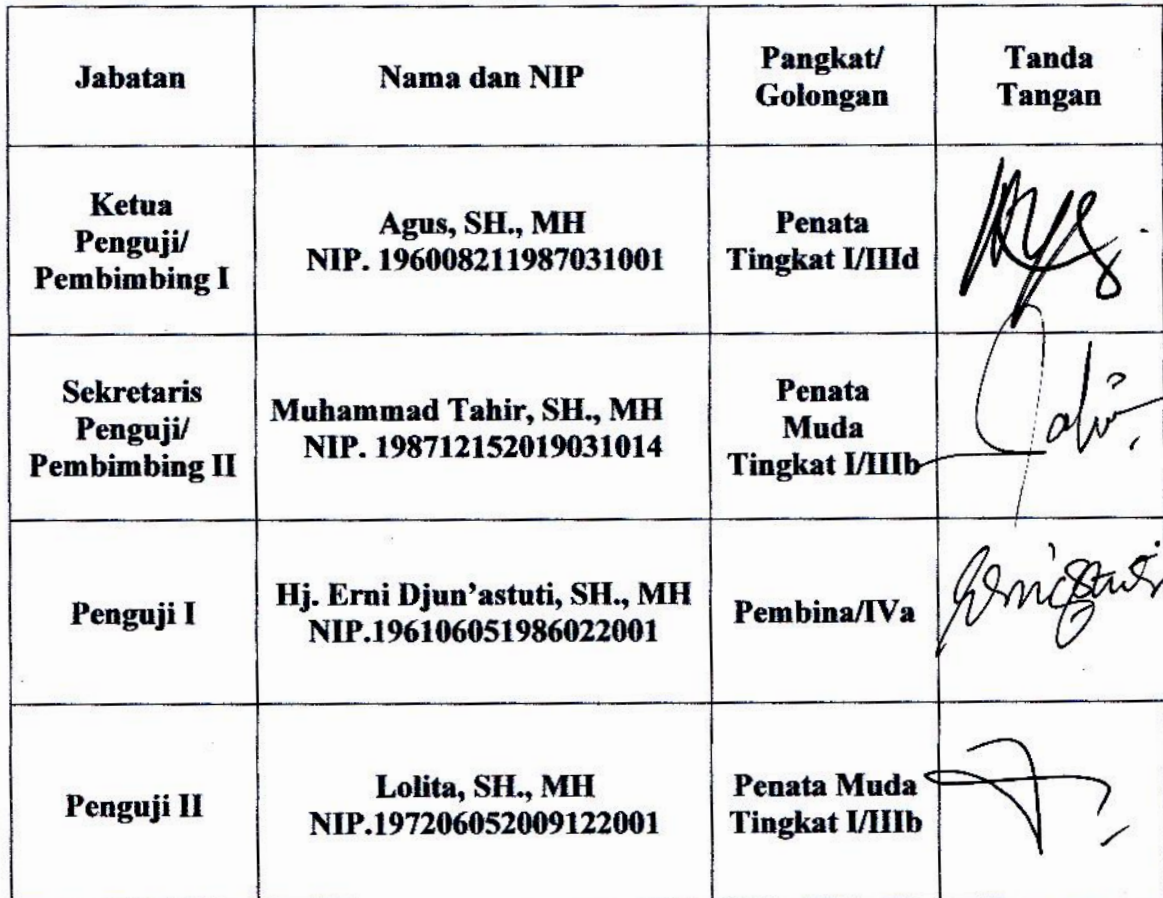 Jabatan
Nama dan NIP
Pangkat/
Golongan
Tanda
Tangan
Ketua
Penguji/
Pembimbing I
Agus, SH., MH
NIP. 196008211987031001
Penata
Tingkat I/IIId
Sekretaris
Penguji/
Pembimbing II
Muhammad Tahir, SH., MH
NIP. 198712152019031014
Penata
Muda
Tingkat I/IIIb
Penguji I
Hj. Erni Djun’astuti, SH., MH
NIP.196106051986022001
Pembina/IVa
Penguji II
Lolita, SH., MH
NIP.197206052009122001
Penata Muda
Tingkat I/IIIb